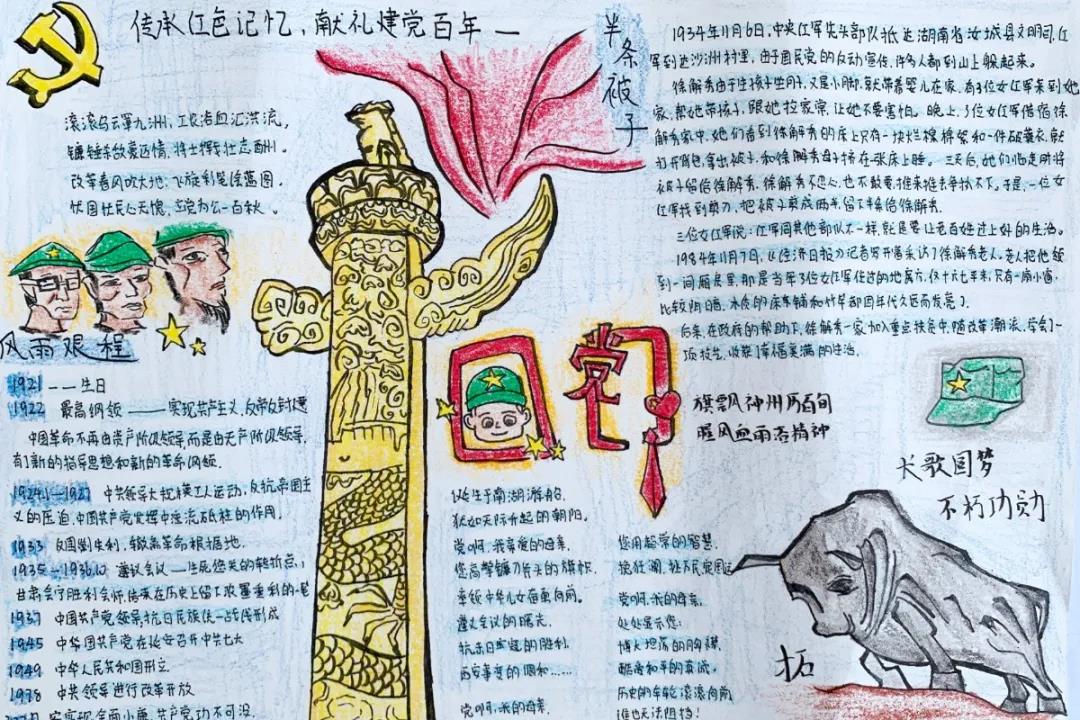 传承红色记忆，献礼建党百年一
滚滚乌云罩九洲，工农浩血汇洪流，
镰锤杀敌豪迈情，将士挥戈壮志酬。
改革春风吹大地，飞旋彩笔绘蓝图。
忧国忧民心无愧，立党为公一百秋。
风雨艰程
1921 ——生日
1922 最高纲领 ——实现共产主义，反帝反封建
中国革命不再由资产阶级领导而是由无产阶级领导，
有了新的指导思想和新的革命纲领。
1924.1—1927 中共领导大规模工人运动，反抗帝国主
义的压迫，中国共产党发挥中流砥柱的作用。
1933 反围剿失利，撤离革命根据地。
1935—1936.10 遵义会议——生死攸关的转折点；
甘肃会宁胜利会师，在历史上留下浓墨重彩的一笔
1937 中国共产党领导抗日民族统一战线形成
1945 中国共产党在延安召开中共七大
1949 中华人民共和国成立
1978 中共领导进行改革开放
实现全面小康，共产党功不可没。
半条被子
1934年11月6日，中央红军先头部队抵达湖南省汝城县文明司，红
军到达沙洲村里，由于国民党的反动宣传，许多人都到山上躲起来。
徐解秀由于生孩子坐月，又是小脚，就带着婴儿在家，有3位女红军来到她
家，帮她带孩子，跟她拉家常，让她不要害怕。晚上，3位女红军借宿徐
解秀家中，她们看到徐解秀的床上只有一块烂棉絮和一件破蓑衣，就
打开背包，拿出被子，和徐解秀母子挤在一张床上睡。三天后，她们临走时将
被子留给徐解秀，徐解秀不忍心，也不敢要，推来推去争执不下。于是，一位女
红军找到剪刀，把被子剪成两半，留下半条给徐解秀。
三位女红军说：红军同其他部队不一样，就是要让老百姓过上好的生活。
1984年11月7日，《经济日报》记者罗开富采访了徐解秀老人，老人把他领
到一间厢房里，那是当年3位女红军住过的地方，仅十几七平米，只有一扇小窗，
比较阴暗，木质的床
后来，在政府的帮助下，徐解秀一家加入重点扶贫中，随改革潮流，学会了一
项技艺，收获了幸福美满的生活。
党
旗飘神州历百旬
腥风血雨
精神
长歌圆梦
不朽功勋
诞生于南湖游船，
犹如天际升起的朝阳。
党啊，我亲爱的母亲，
您高擎镰刀斧头的旗帜，
率领中华儿女奋勇向前。
遵义会议的曙光，
抗击日寇的胜利，
西安事变的调和……
党啊，我的母亲，
您用超常的智慧，
挽狂澜，拯万民
党啊，我的母亲，
处处显示您：
博大坦荡的胸襟，
酷爱和平的真诚。
历史的车轮滚滚向前，
谁也无法阻挡！
拓